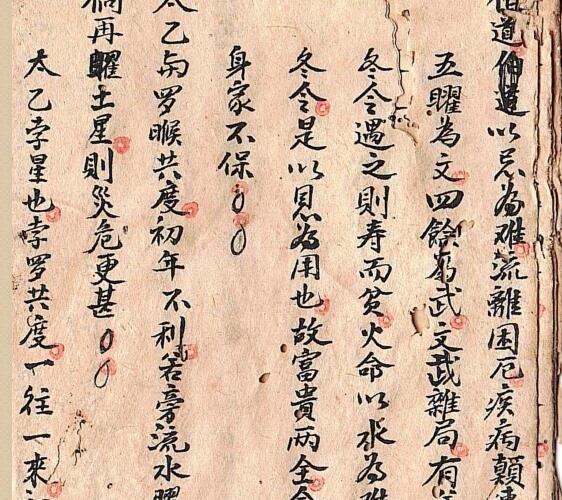 道以忌為难流離困厄疾病顛
五曜為文四餘為武文武雜局有
冬令遇之則寿而貧火命以水為难
冬令是以恩為用也故富貴两全
身家不保
太乙与罗睺共度初年不利若旁流水曜
倘再曜土星則災危更甚
太乙孛星也孛罗共度一往一來